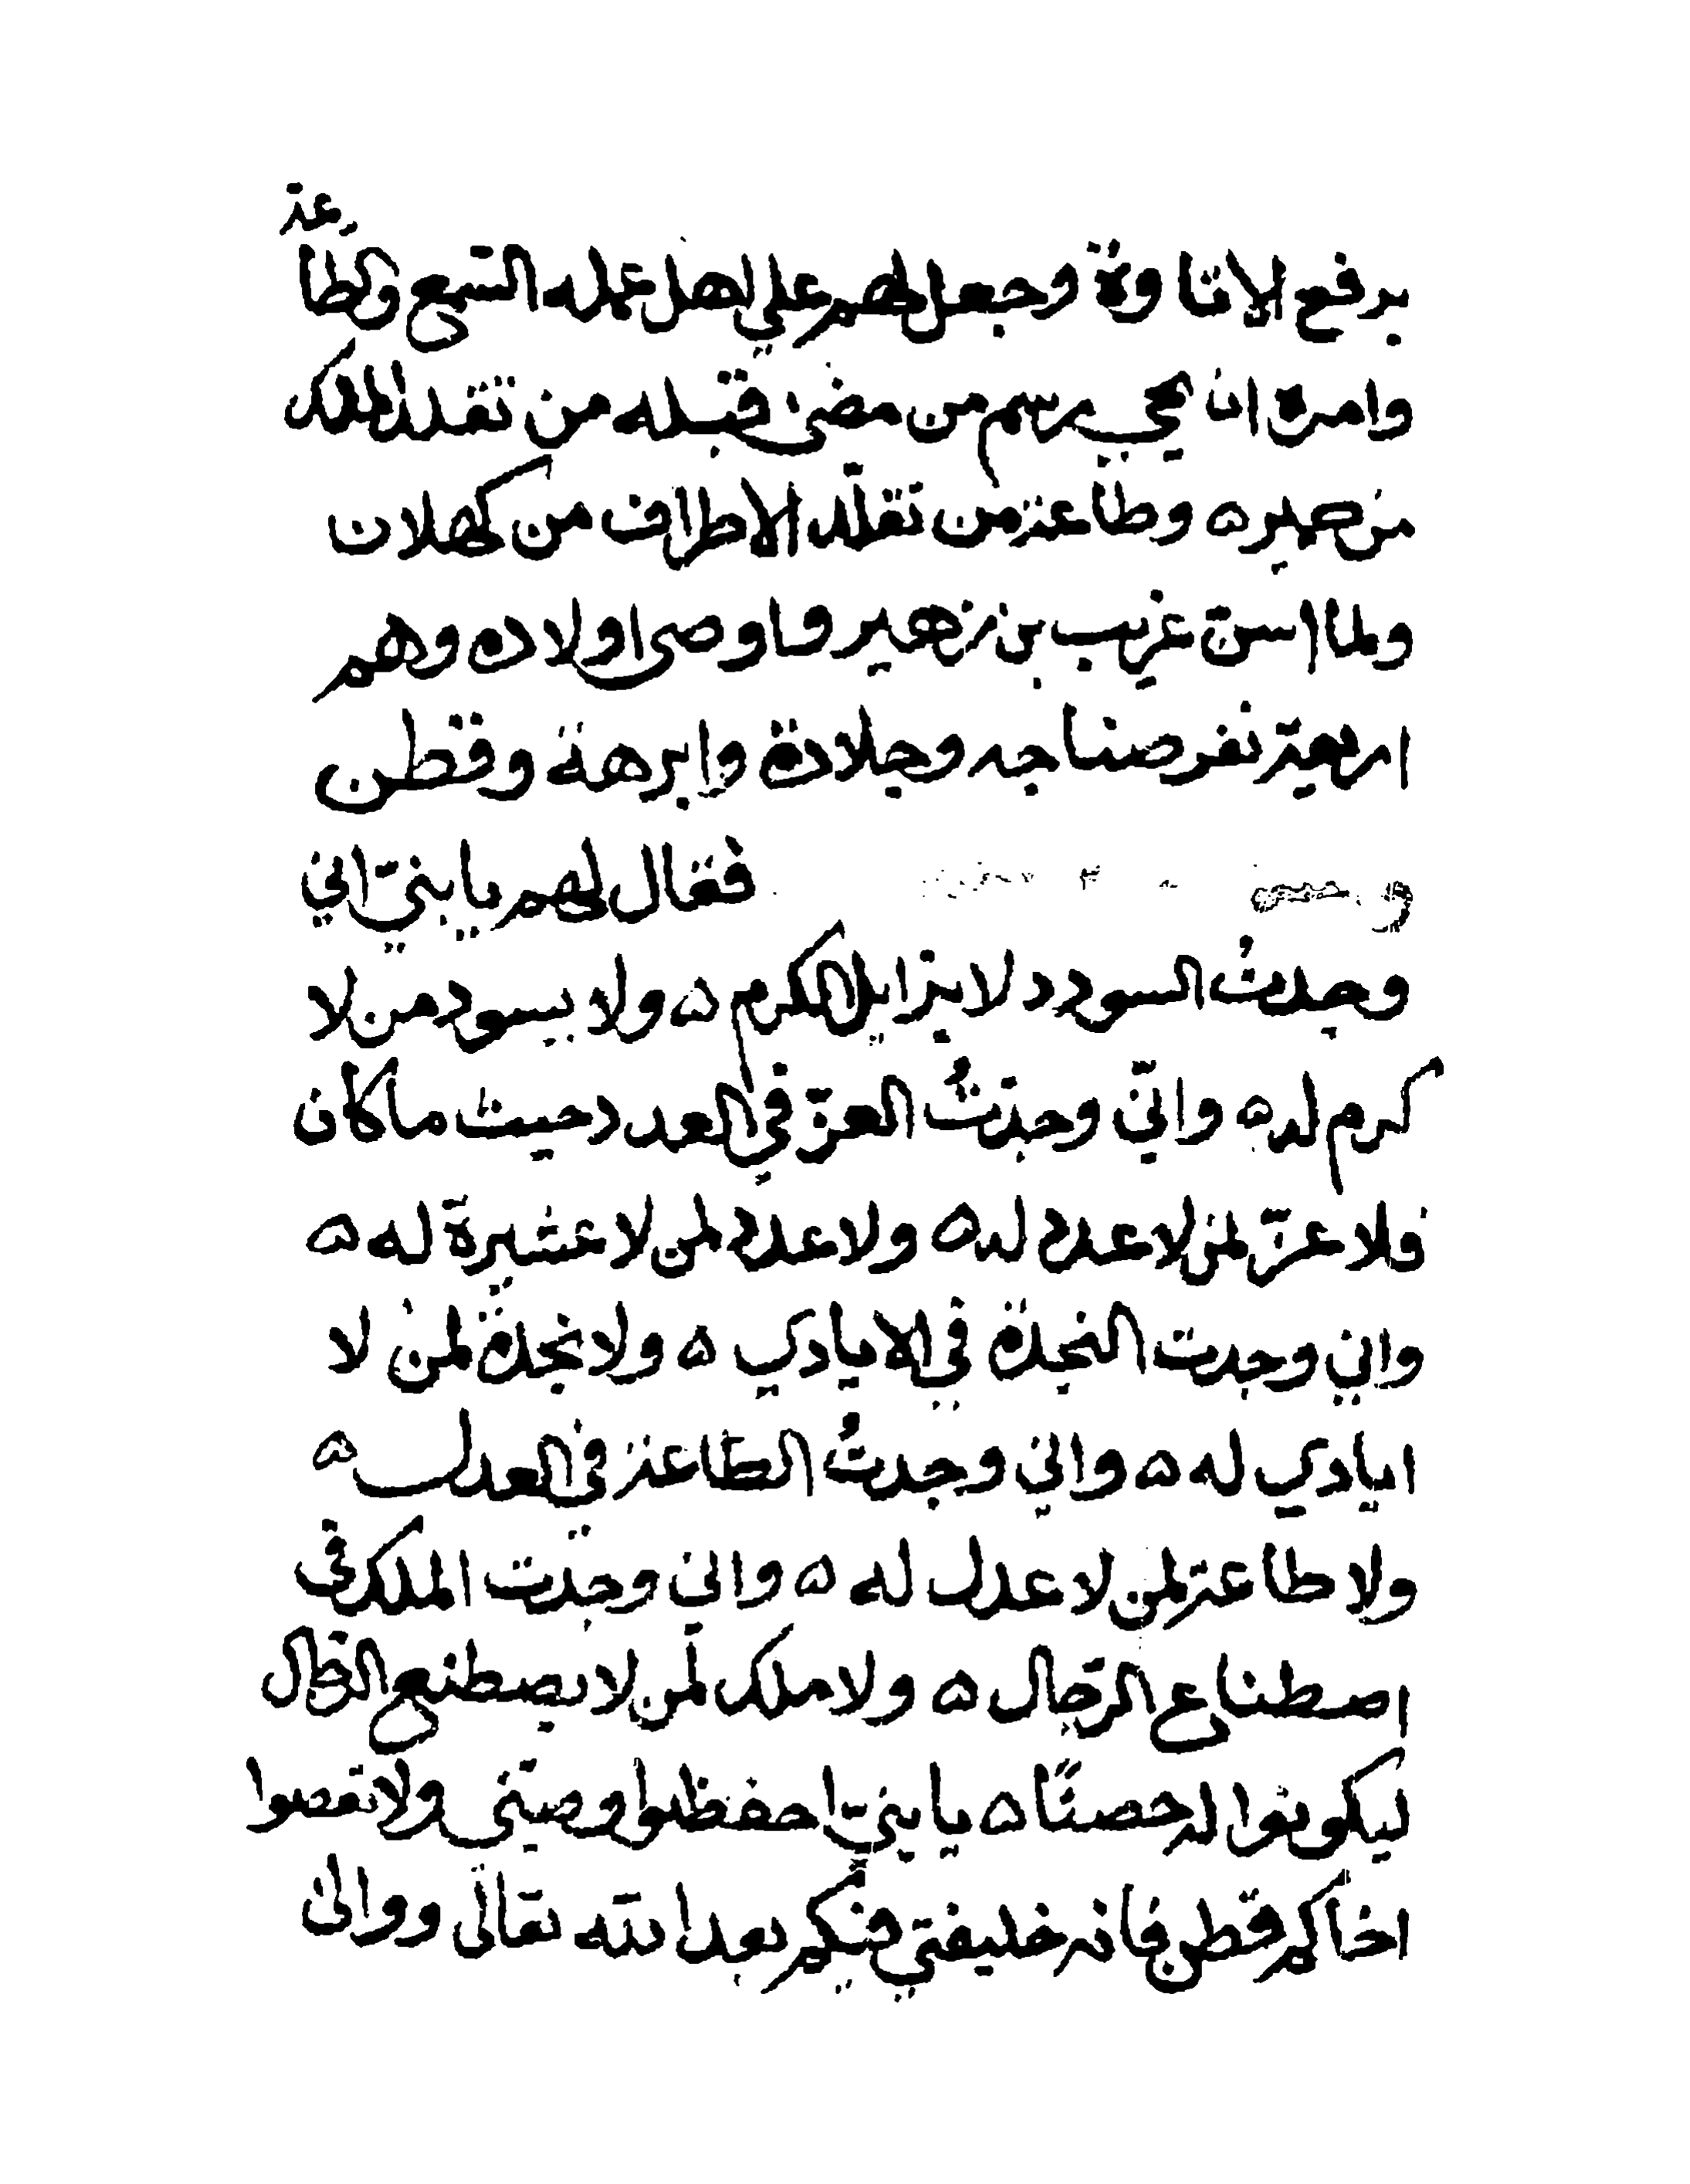 برفع الاتاوة وجعل لهم على اهل عمله السمع والطاعة
وامره ان يحيي رسم من مضى قبله من تقلد الملك
من حمير ه وطاعة من تقلد الاطراف من كهلان
ولما اسن عريب بن زهير فاوصى اولاده وهم
اربعة نفر صناجه وجلادة وابرهة وقطن
فقال لهم يا بنيّ اني
وجدتُ السودد لا يزايل الكرم ه ولا يسود من لا
كرم له ه وانّي وجدتُ العزّ في العدد حيث ما كان
فلا عزّ لمن لا عدد له ه ولا عدد لمن لا عشيرة له ه
واني وجدت النجدة في الايادي ه ولا نجدة لمن لا
ايادي له ه واني وجدتُ الطاعة في العدل ه
ولا طاعة لمن لا عدل له ه واني وجدت الملك في
اصطناع الرّجال ه ولا ملك لمن لا يصطنع الرّجال
ليكونوا له حصنًا ه يا بنيّ احفظوا وصيّتي ولا تعصوا
اخاكم قطن فانه خليفتي فيكم بعد الله تعالى ووالى